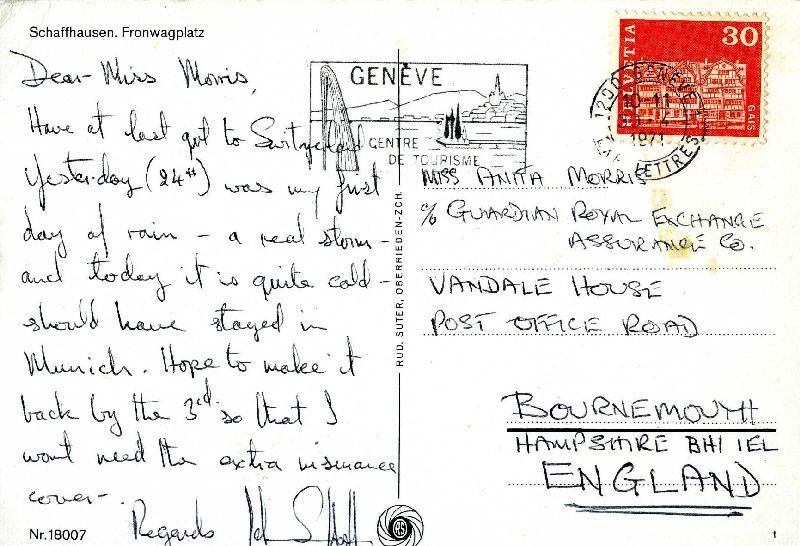 Schaffhausen. Fronwagplatz
Dear Miss Morris,
Have at last got to Switzerland
Yesterday (24th) was my first
day of rain – a real storm –
and today it is quite cold –
should have stayed in
Munich. Hope to make it
back by the 3rd so that I
wont need the extra insurance
cover –
Regards
Nr. 18007
RUD. SUTER, OBERRIEDEN-ZCH.
GENÈVE
CENTRE
DE TOURISME
1200 GENÈVE
10-11
1971
LETTRES
HELVETIA
30
GAIS
MISS ANITA MORRIS
c/o GUARDIAN ROYAL EXCHANGE
ASSURANCE CO.
VANDALE HOUSE
POST OFFICE ROAD
BOURNEMOUTH
HAMPSHIRE BH1 1EL
ENGLAND
RS
1